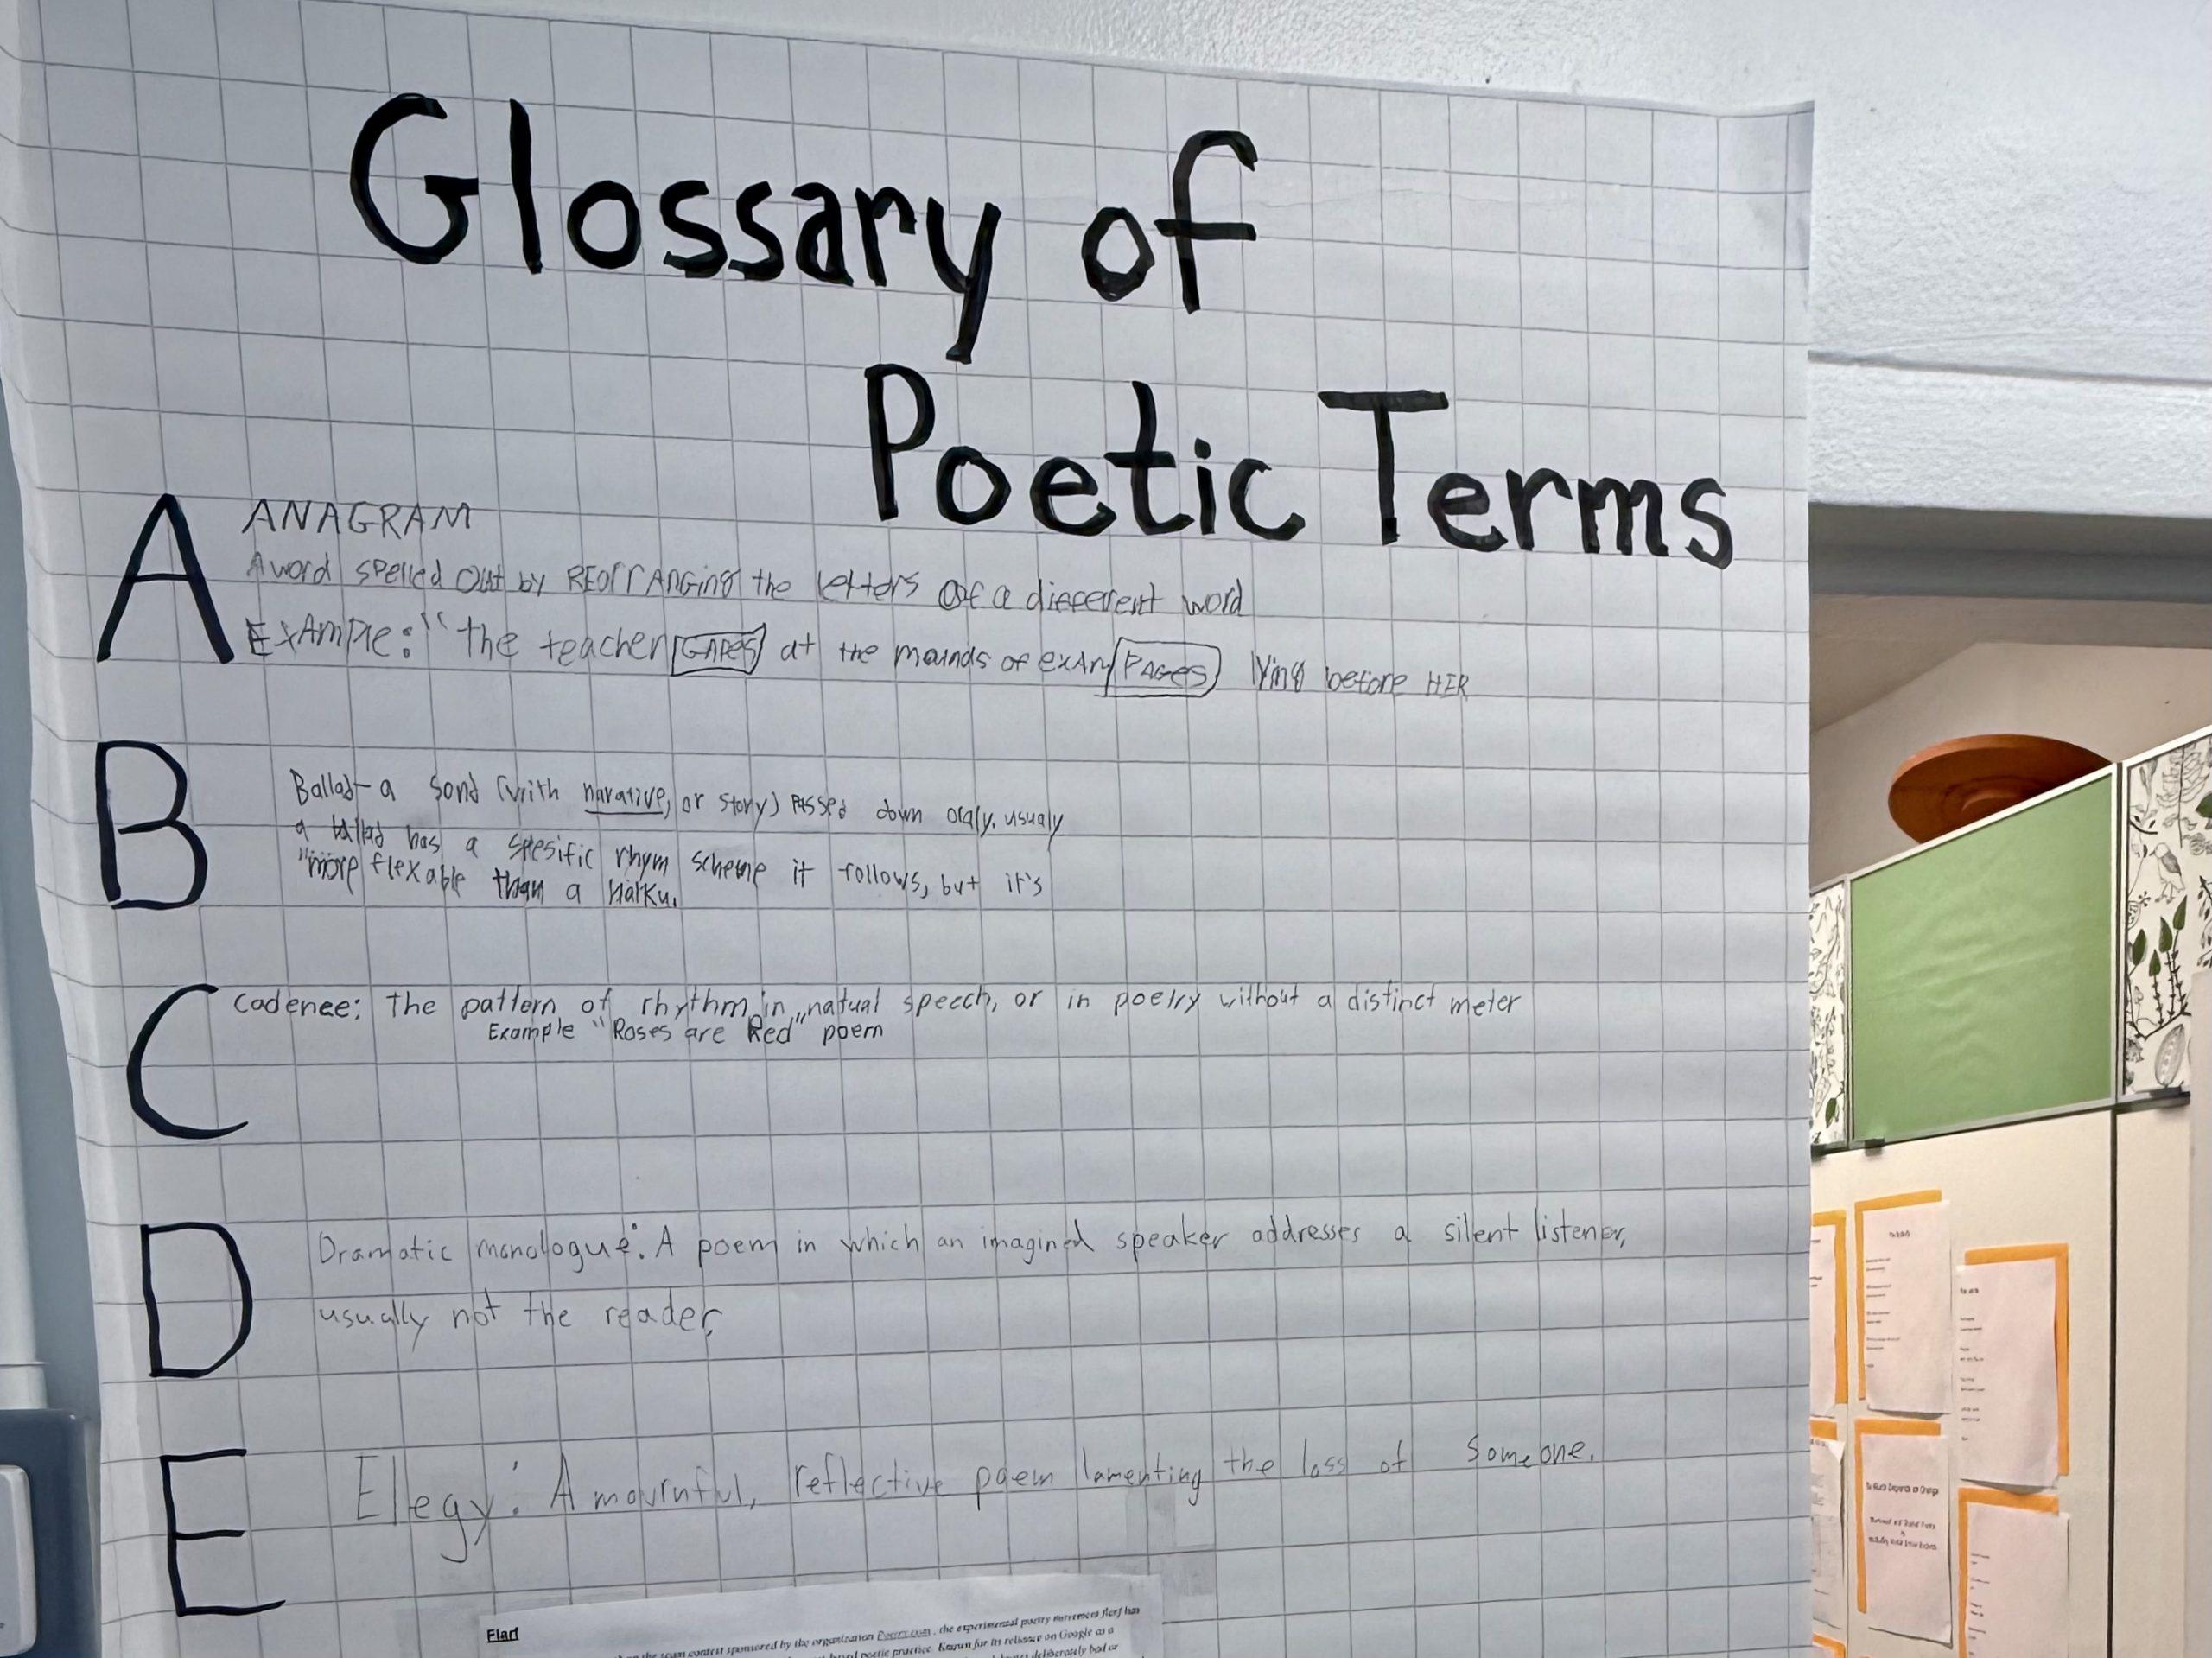 Glossary of
Poetic Terms
A
ANAGRAM
A word spelled out by REOrrANGing the letters of a different word
ExAmple: "the teacher GAPES at the mounds of exAm PAGES lying before HER
B
Ballad- a song (with narative, or story) passed down oraly. usualy
a ballad has a spesific rhym scheme it follows, but it's
"more flexable than a Haiku.
C
Cadence: The pattern of rhythm in natual speech, or in poetry without a distinct meter
Example "Roses are Red" poem
D
Dramatic monologue: A poem in which an imagined speaker addresses a silent listener,
usually not the reader.
E
Elegy: A mournful, reflective poem lamenting the loss of someone.
Flarf
the scam contest sponsored by the organization Poetry.com, the experimental poetry movement Flarf has
poetic practice. Known for its reliance on Google as a
deliberately bad or